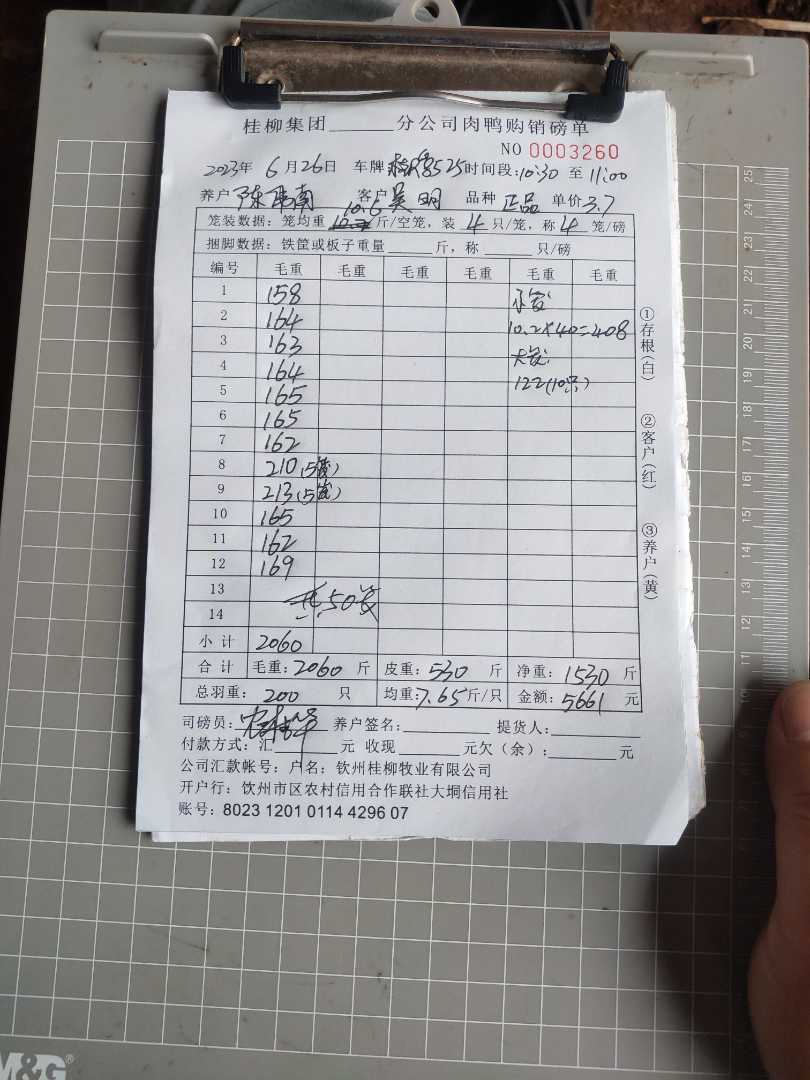 桂柳集团______分公司肉鸭购销磅单
NO 0003260
2023年 6月26日 车牌 8525 时间段:10:30 至 11:00
养户 陈 南 客户 吴明 品种 正品 单价 3.7
笼装数据：笼均重 10.6 斤/空笼，装 4 只/笼，称 4 笼/磅
捆脚数据：铁筐或板子重量______斤，称______只/磅
编号 毛重 毛重 毛重 毛重 毛重 毛重
1 158
2 164 10.2×40=408
3 163
4 164 122(10只)
5 165
6 165
7 162
8 210(5笼)
9 213(5笼)
10 165
11 162
12 169
13 共50笼
14
小计 2060
合计 毛重：2060 斤 皮重：530 斤 净重：1530 斤
总羽重：200 只 均重：7.65 斤/只 金额：5661 元
司磅员： 养户签名：________ 提货人：________
付款方式：汇________元 收现________元欠（余）：________元
公司汇款帐号：户名：钦州桂柳牧业有限公司
开户行：钦州市区农村信用合作联社大垌信用社
账号：8023 1201 0114 4296 07
①存根(白)
②客户(红)
③养户(黄)
25
24
23
22
21
20
19
18
17
16
15
14
13
12
11
10
M&G